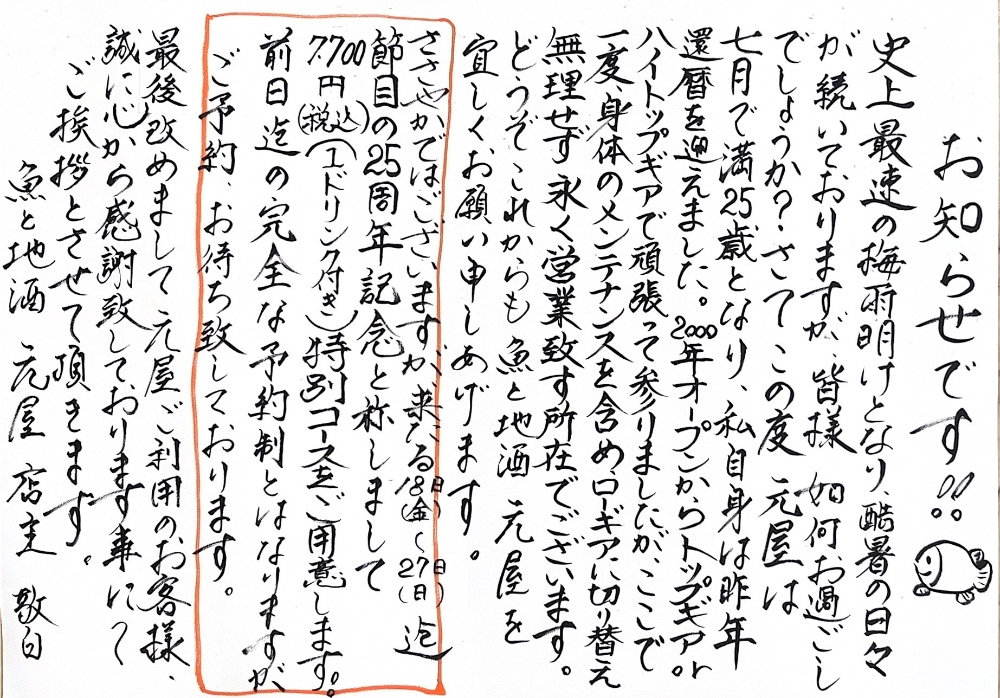 お知らせです!!
史上最速の梅雨明けとなり、酷暑の日々
が続いておりますが、皆様 如何お過ごし
でしょうか?さて、この度 元屋は
七月で満25歳となり、私自身は昨年
還暦を迎えました。2000年オープンからトップギアor
ハイトップギアで頑張って参りましたが、ここで
一度、身体のメンテナンスを含め、ローギアに切り替え
無理せず永く営業致す所在でございます。
どうぞこれからも魚と地酒 元屋を
宜しくお願い申しあげます。
ささやかではございますが、来たる18日(金)〜27日(日)迄
節目の25周年記念と称しまして
7.700円(税込)(1ドリンク付き)特別コースをご用意します。
前日迄の完全な予約制とはなりますが、
ご予約、お待ち致しております。
最後、改めまして元屋ご利用のお客様、
誠に心から感謝致しております事にて
ご挨拶とさせて頂きます。
魚と地酒 元屋 店主 敬白